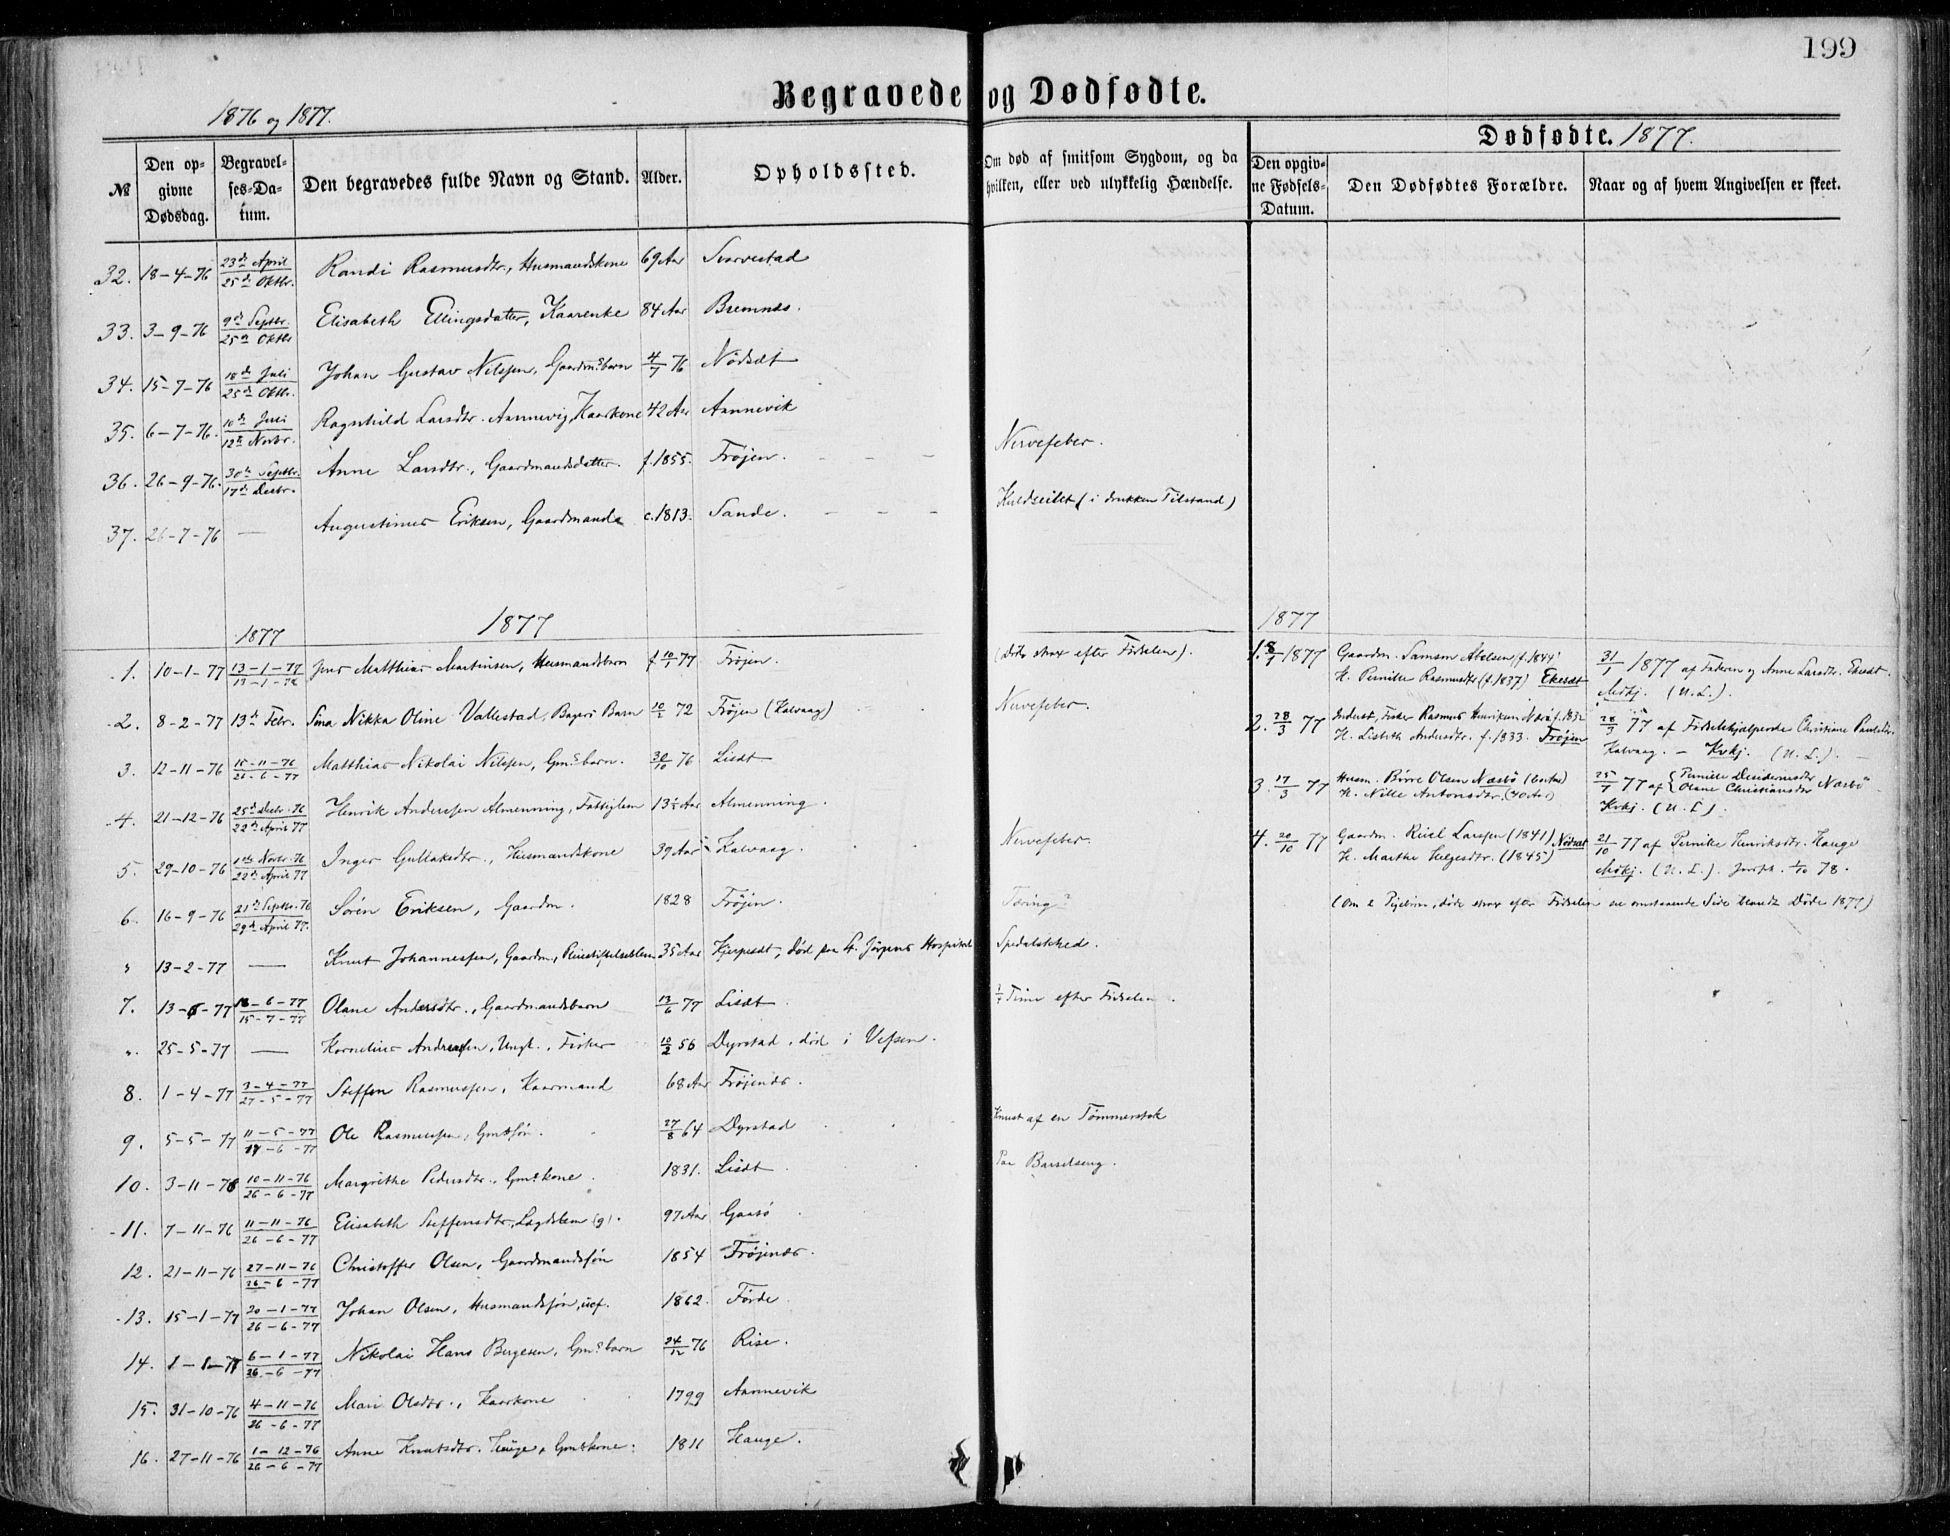 199
Begravede og Dødfødte.
1876 og 1877.
Dødfødte. 1877.
№
Den opgivne Dødsdag.
Begravelses-Datum.
Den begravedes fulde Navn og Stand.
Alder.
Opholdssted.
Om død af smitsom Sygdom, og da hvilken, eller ved ulykkelig Hændelse.
Den opgivne Fødsels-Datum.
Den Dødfødtes Forældre.
Naar og af hvem Angivelsen er skeet.
32. 18-4-76 23de April 25de Oktbr. Randi Rasmusdtr., Husmandskone 69 Aar Svarvestad
33. 3-9-76 9de Septbr. 25de Oktbr Elisabeth Ellingsdatter, Kaarenke 84 Aar Bremnes.
34. 15-7-76 18de Juli 25de Oktbr. Johan Gustav Nilssen, Gaardms barn 4/7 76 Nødset
35. 6-7-76. 10de Juli 12te Novbr. Ragnhild Larsdtr. Aannevig, Kaarkone 42 Aar Aannevik
36. 26-9-76. 30te Septbr. 17de Decbr. Anne Larsdtr., Gaardmandsdatter. f. 1855. Frøjen. Nervefeber.
37. 26-7-76 — Augustinus Eriksen, Gaardmand c. 1813. Sande. Kuldseilet (i drukken Tilstand)
1877 1877 1877
1. 10-1-77 13-1-77 13-1-78 Jens Matthias Martinsen, Husmandsbarn f. 10/1 77 Frøjen. (Døde strax efter Fødselen).
2. 8-2-77 13de Febr. Sina Nikka Oline Vallestad, Bagers Barn 10/2 72 Frøjen (Kalvaag) Nervefeber.
3. 12-11-76 15-11-76 26-6-77 Matthias Nikolai Nilssen, Gms barn. 30/10 76 Lisæt
4. 21-12-76 25de Decbr. 76 22de April 77 Henrik Anderssen Almenning, Fattiglem Aar Almenning.
5. 29-10-76 1ste Novbr. 76 22de April 77 Inger Gullaksdtr., Husmandskone 39 Aar Kalvaag. Nervefeber.
6. 16-9-76 21de Septbr. 76 29de April 77. Sørén Eriksen, Gaardm. 1828 Frøjen. Tæring?
" 13-2-77 — Knut Johannessen, Gaardm., Pleiestiftelseslem 35 Aar Hjerpesæt, død paa St. Jørgens Hospital Spedalskhed.
7. 13-6-77 18-6-77 15-7-77 Olane Andersdtr., Gaardmandsbarn 13/6 77 Lisæt. Time efter Fødselen.
" 25-5-77 — Kornelius Anderssen, Ungk., Fisker 10/2 56 Dyrstad, død i Vefsen.
8. 1-4-77 3-4-77 27-5-77 Steffen Rasmussen, Kaarmand 68 Aar Frøjenes.
9. 5-5-77 11-5-77 17-6-77 Ole Rasmussen, Gmsøn. 27/8 64 Dyrstad Knust af en Tømmerstok
10. 3-11-76 10-11-76 26-6-77 Margrithe Pedersdtr., Gms kone. 1831. Lisæt Paa Barselseng.
11. 7-11-76 11-11-76 26-6-77 Elisabeth Steffensdtr., Lægdslem (g). 97 Aar Gaasø
12. 21-11-76 27-11-76 26-6-77 Christoffer Olsen, Gaardmandssøn 1854 Frøjenes.
13. 15-1-77 20-1-77 26-6-77 Johan Olsen, Husmandssøn, ucf. 1862. Førde.
14. 1-1-77 6-1-77 26-6-77 Nikolai Hans Bergesen, Gms barn 24/12 76 Rise.
15. 31-10-76 4-11-76 26-6-77 Mari Olsdtr., Kaarkone 1799 Aannevik
16. 27-11-76 1-12-76 26-6-77 Anne Knutsdtr. Hauge, Gmskone. 1811 Hauge.
1. 8/1 1877 Gaardm. Samson Abelsen (f. 1844)
H. Pernille Rasmusdtr (f. 1837) Ekesæt
31/1 1877 af Faderen og Anne Larsdtr. Ekesæt.
Mdkj. (U.L.).
2. 28/3 77 Inderst, Fisker Rasmus Henriksen f. 1832
H. Lisbeth Andersdtr. f. 1833. Frøjen
28/3 77 af Fødselshjælperske Christiane Paulsdtr.
Kalvaag. — Kvkj. (U.L.).
3. 17/3 77 Husm. Børre Olsen Næsbø
H. Nille Antonsdtr. (40 Aar)
25/7 77 af Pernille Olane Christiansdtr Næsbø
Kvkj. (U.L).
4. 20/10 77 Gaardm. Larssen (1841) Nødset
H. Marthe Helgesdtr. (1845)
21/10 77 af Pernike Henriksdtr. Hauge
Mdkj. (U.L.). 78.
(Om 2 Pigebørn, døde strax efter Fødselen se omstaaende Side blandt Døde 1877)